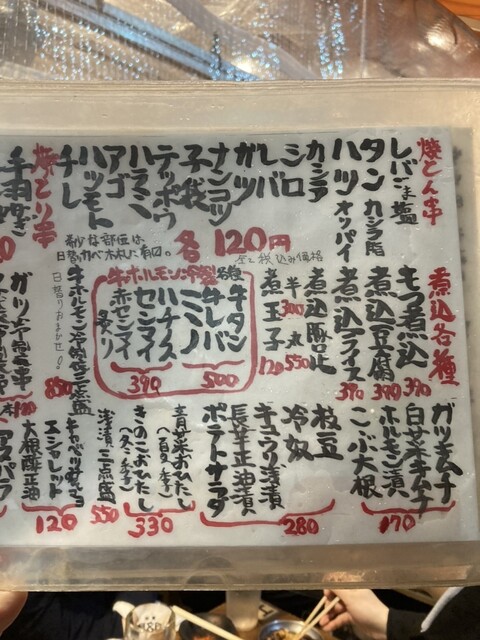 焼とん串
レバごま塩
タン カシラ脂
ハツ オッパイ
カシラ
シロ
レバ
ガツ
ナンコツ
子袋
テッポウ
ハラミ
アゴ
ハツモト
チレ
各120円
全て税込み価格
希少な部位は、
日替カベ木札に有り。
焼とり串
煮込各種
もつ煮込 390
煮込豆腐 390
煮込ライス 390
煮込豚足
半300 丸550
煮玉子 120
牛ホルモン冷製各種
牛タン
牛レバ
ミノ
500
ハチノス
センマイ
赤センマイ
390
牛ホルモン冷製三点盛
850
日替りおまかせ!
ガツキムチ
白菜キムチ
ホルモン漬
こぶ大根
170
枝豆
冷奴
キュウリ浅漬
長芋正油漬
ポテトサラダ
280
青菜おひたし
きのこおひたし
(冬季)
330
浅漬三点盛
550
エシャレット
大根醤正油
120
アスパラ